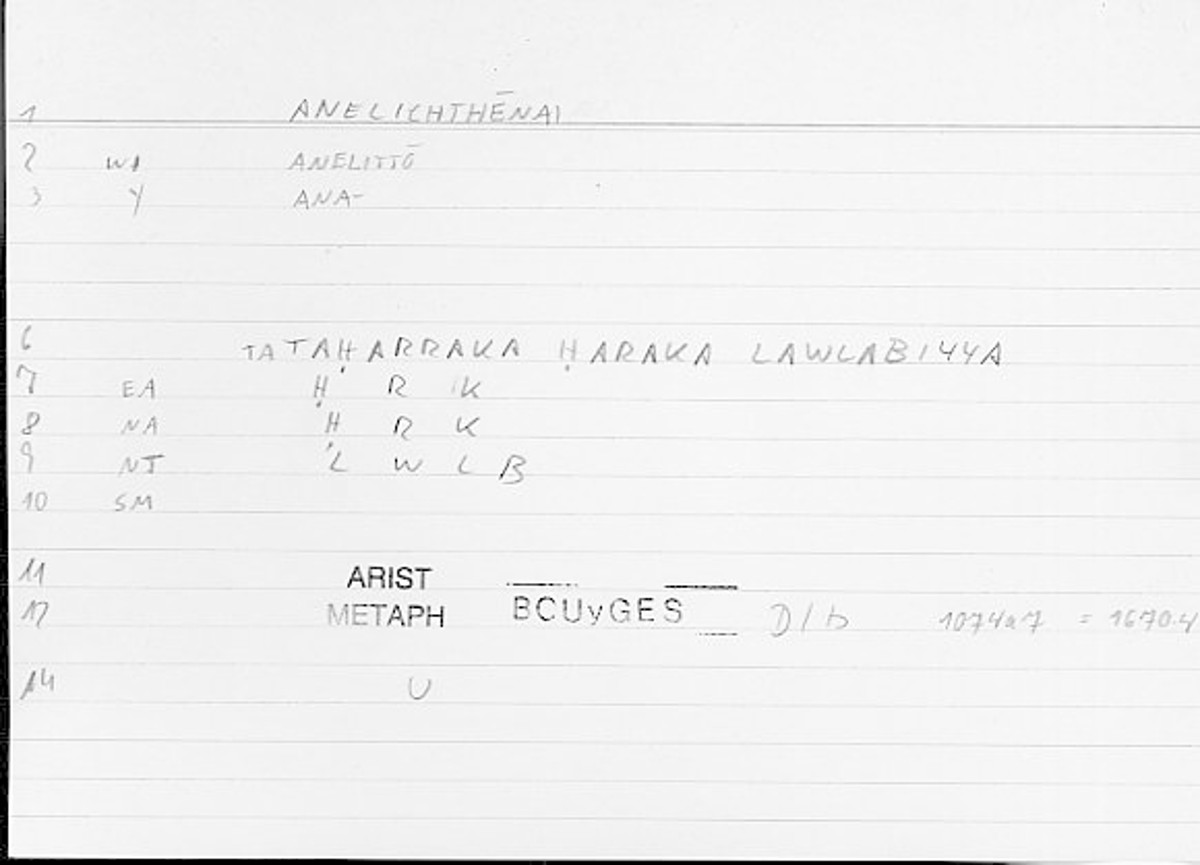 1 ANELICHTHĒNAI
2 WI ANELITTŌ
3 Y ANA-
6 TATAḤARRAKA ḤARAKA LAWLABIYYA
7 EA Ḥ R K
8 NA Ḥ R K
9 NT L W L B
10 SM
11 ARIST
12 METAPH BCUyGES D/b 1074a7 = 1670.4
14 U